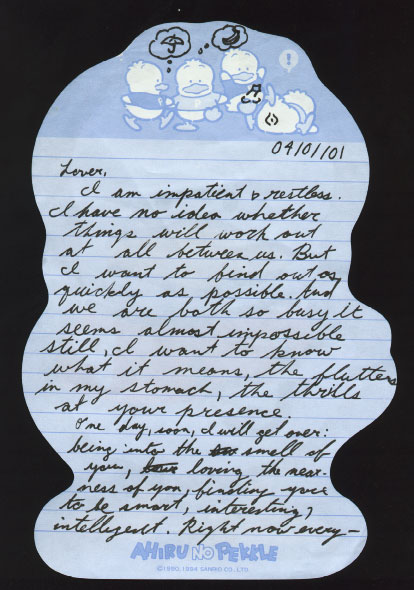 04/01/01
Lover,
I am impatient & restless.
I have no idea whether
things will work out
at all between us. But
I want to find out as
quickly as possible. And
we are both so busy it
seems almost impossible
still, I want to know
what it means, the flutters
in my stomach, the thrills
at your presence.
One day, soon, I will get over:
being into the smell of
you, loving the near-
ness of you, finding you
to be smart, interesting,
intelligent. Right now every-
AHIRU NO PEKKLE
©1990, 1994 SANRIO CO., LTD.